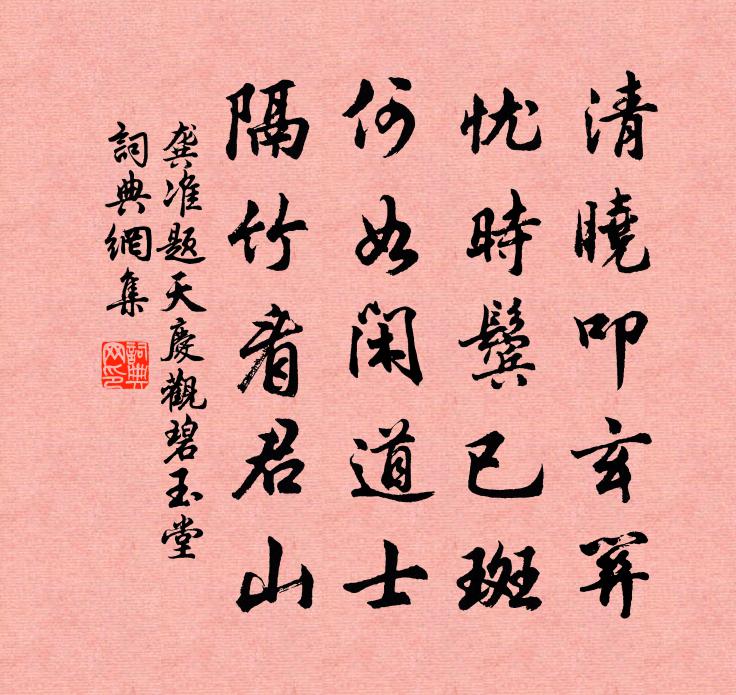 清曉叩玄關
忧時鬢已斑
何如閑道士
隔竹看君山
龚准题天慶觀碧玉堂
詞典網集
詞典
网印